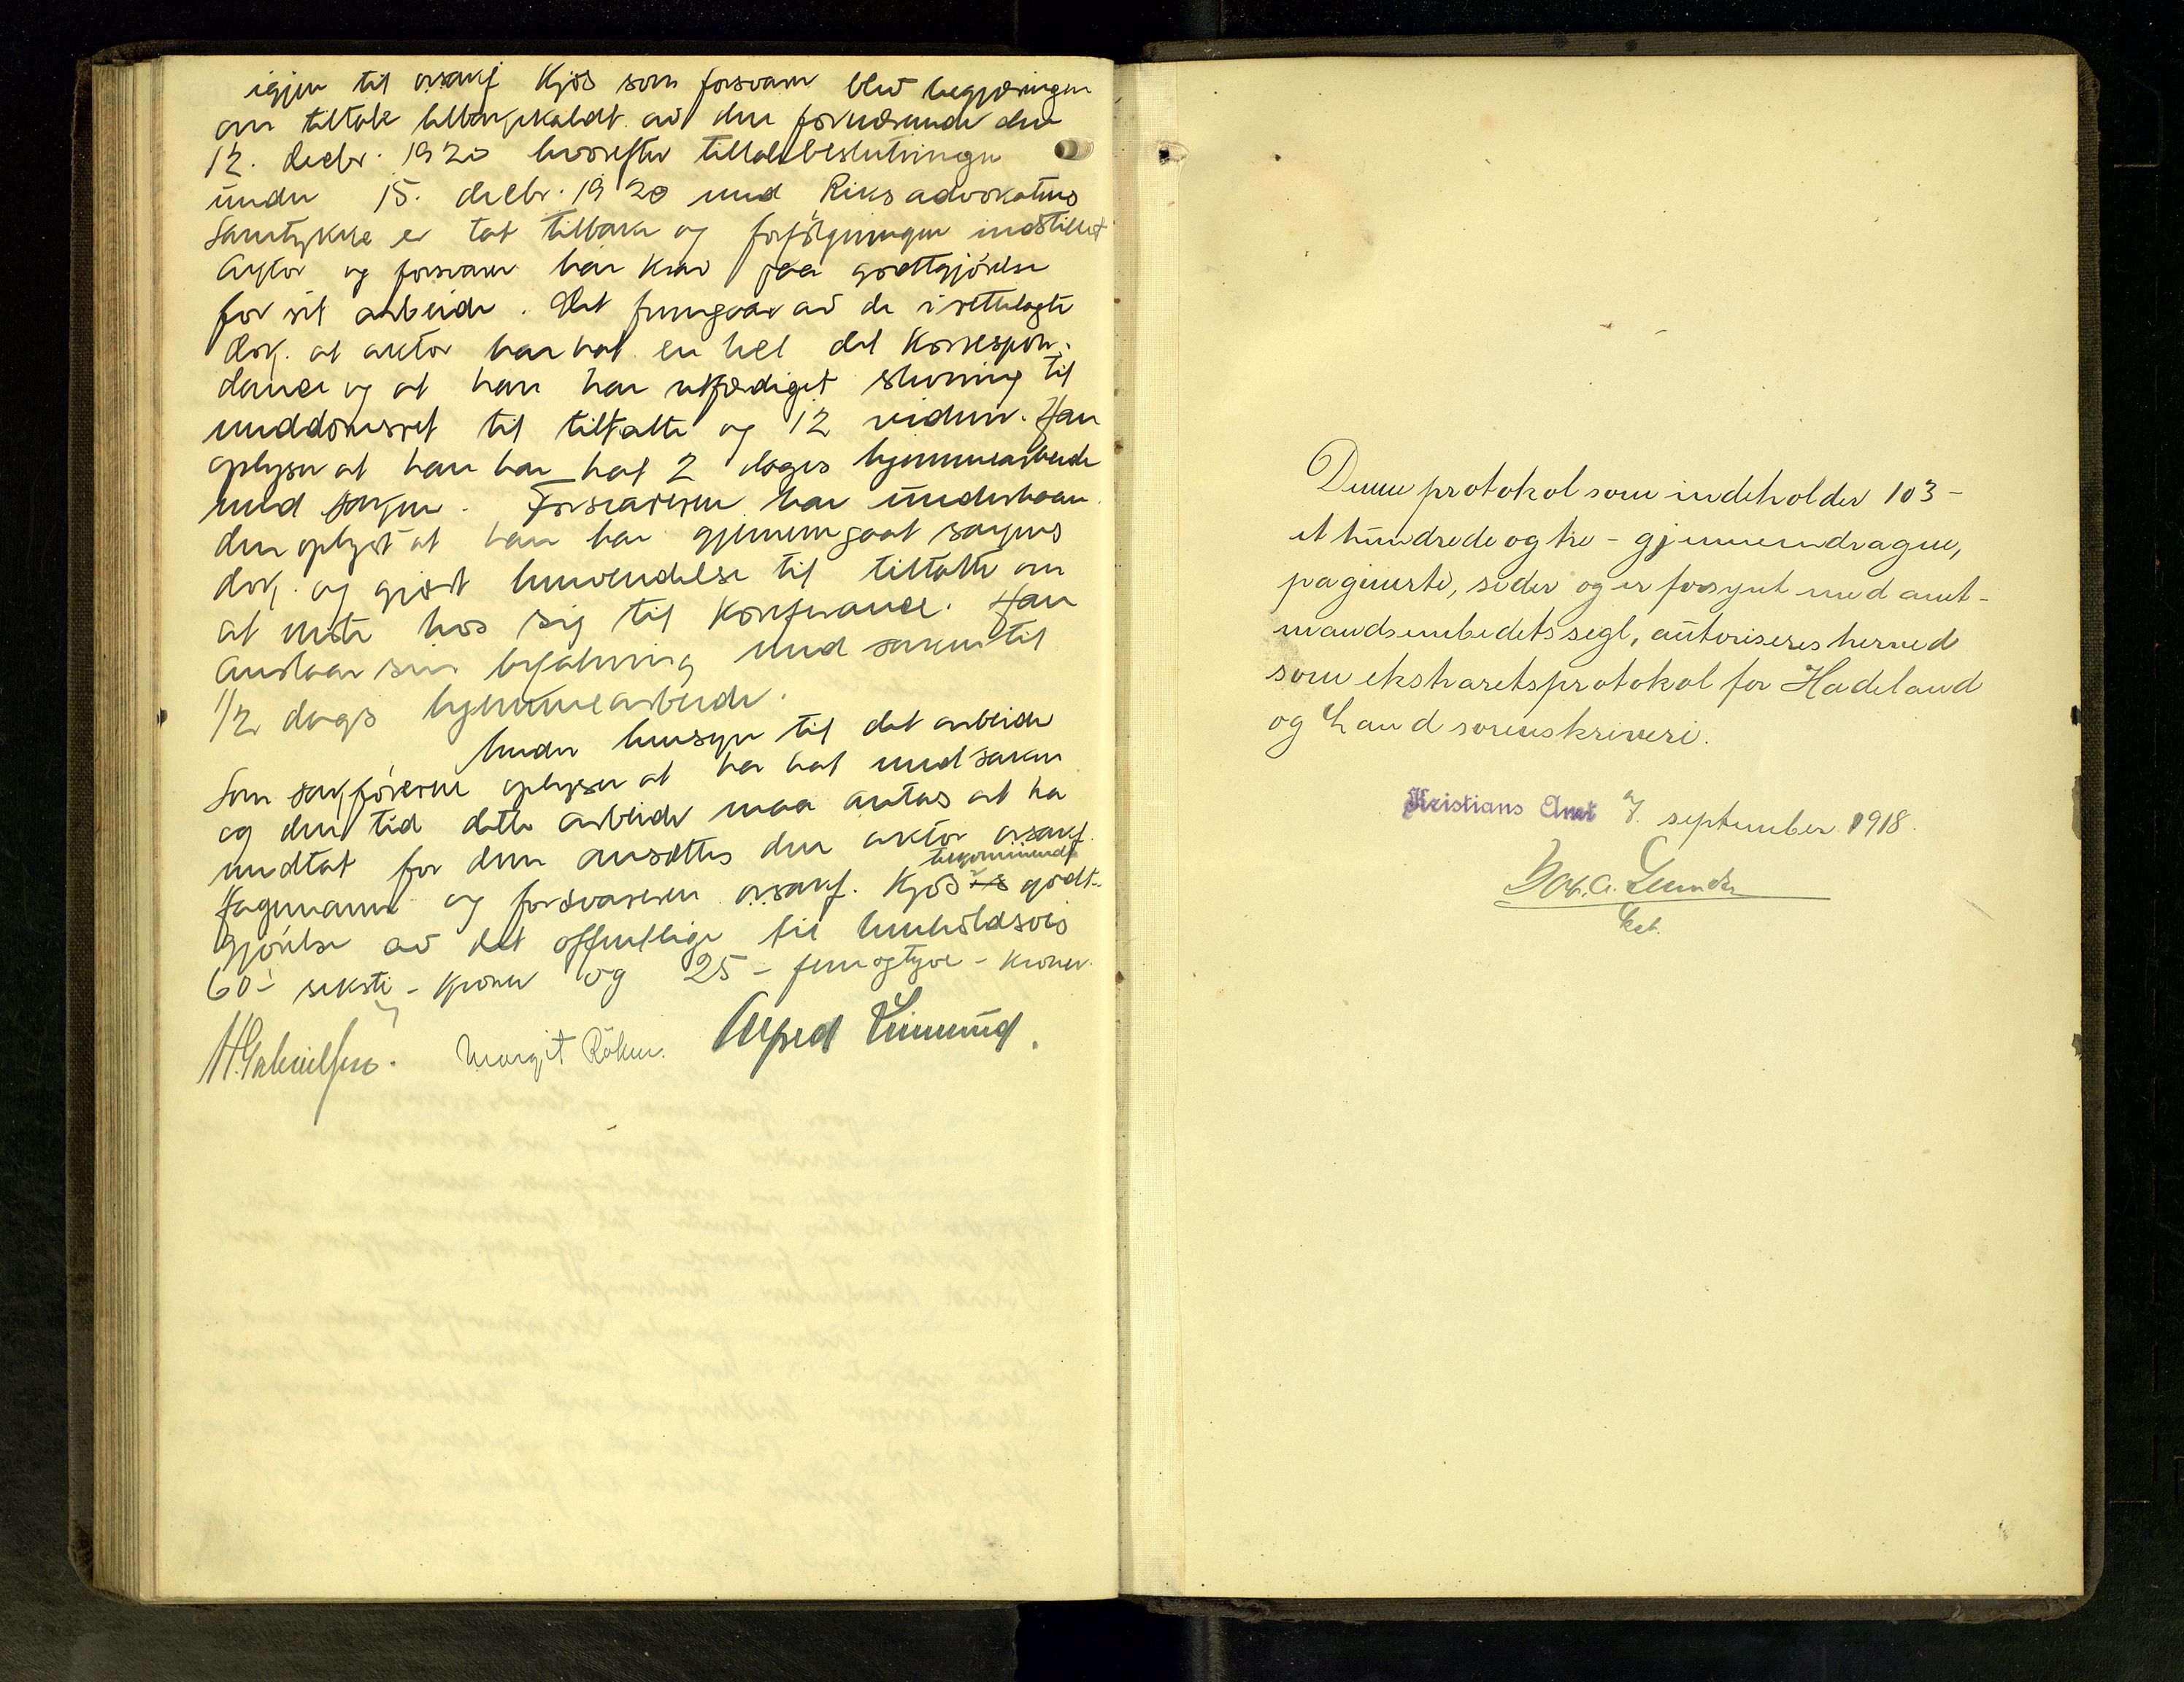 igjen til orsakf Kjös som forsvarer blev begjæringen
om tiltale tilbakekaldt av den fornærmede den
12. decbr. 1920 hvorefter tiltalebeslutningen
under 15. decbr. 1920 med Riksadvokatens
Samtykke er tat tilbake og forfölgningen indstillet
Aktor og forsvarer har krav paa godtgjörelse
for sit arbeide. Det fremgaar av de i rettelagte
dok. at aktor har hat en hel del korrespon-
dance og at han har utfærdiget stevning til
meddomsret til tiltalte og 12 vidner. Han
oplyser at han har hat 2 dages hjemmearbeide
med saken. Forsvareren har underhaan-
den oplyst at han har gjennemgaat sakens
dok. og gjort henvendelse til tiltalte om
at möte hos sig til konferance. Han
anslaar sin befatning med saken til
1/2 dags hjemmearbeide.
Under hensyn til det arbeide
Som sakförerne oplyser at ha hat med saken
og den tid dette arbeide maa antas at ha
medtat for dem ansættes den aktor orsakf.
Fagermann og forsvareren orsakf. Kjös tilkommende godt-
gjörelse av det offentlige til henholdsvis
60 - seksti - kroner og 25 - femogtyve - kroner.
H. Gabrielsen. Margit Röken. Alfred Leimund.
Denne protokol som indeholder 103 -
et hundrede og tre - gjennemdragne,
paginerte, sider og er forsynt med amt-
mandsembedets segl, autoriseres herved
som ekstraretsprotokol for Hadeland
og Land sorenskriveri.
Kristians Amt 7. september 1918.
Kst.